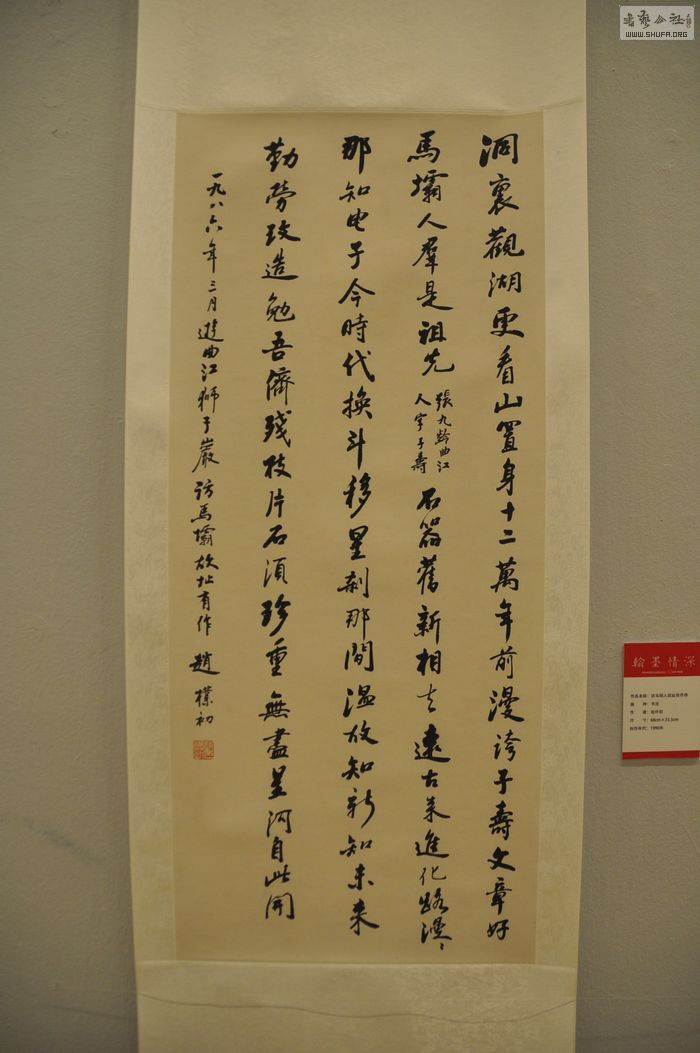 書藝公社
WWW.SHUFA.ORG
洞裏觀湖更看山置身十二萬年前漫誇子壽文章好
馬壩人羣是祖先
張九齡曲江
人字子壽
石器舊新相去遠古來進化路漫〻
那知电子今時代換斗移星剎那間溫故知新知未來
勤勞改造勉吾儕殘枝片石須珍重無盡星河自此開
一九八六年三月遊曲江獅子巖訪馬壩故址有作 趙樸初
翰墨情深
作品名称：
书法
作 者：赵朴初
尺 寸：68cm×33.5cm
创作年代：1990年